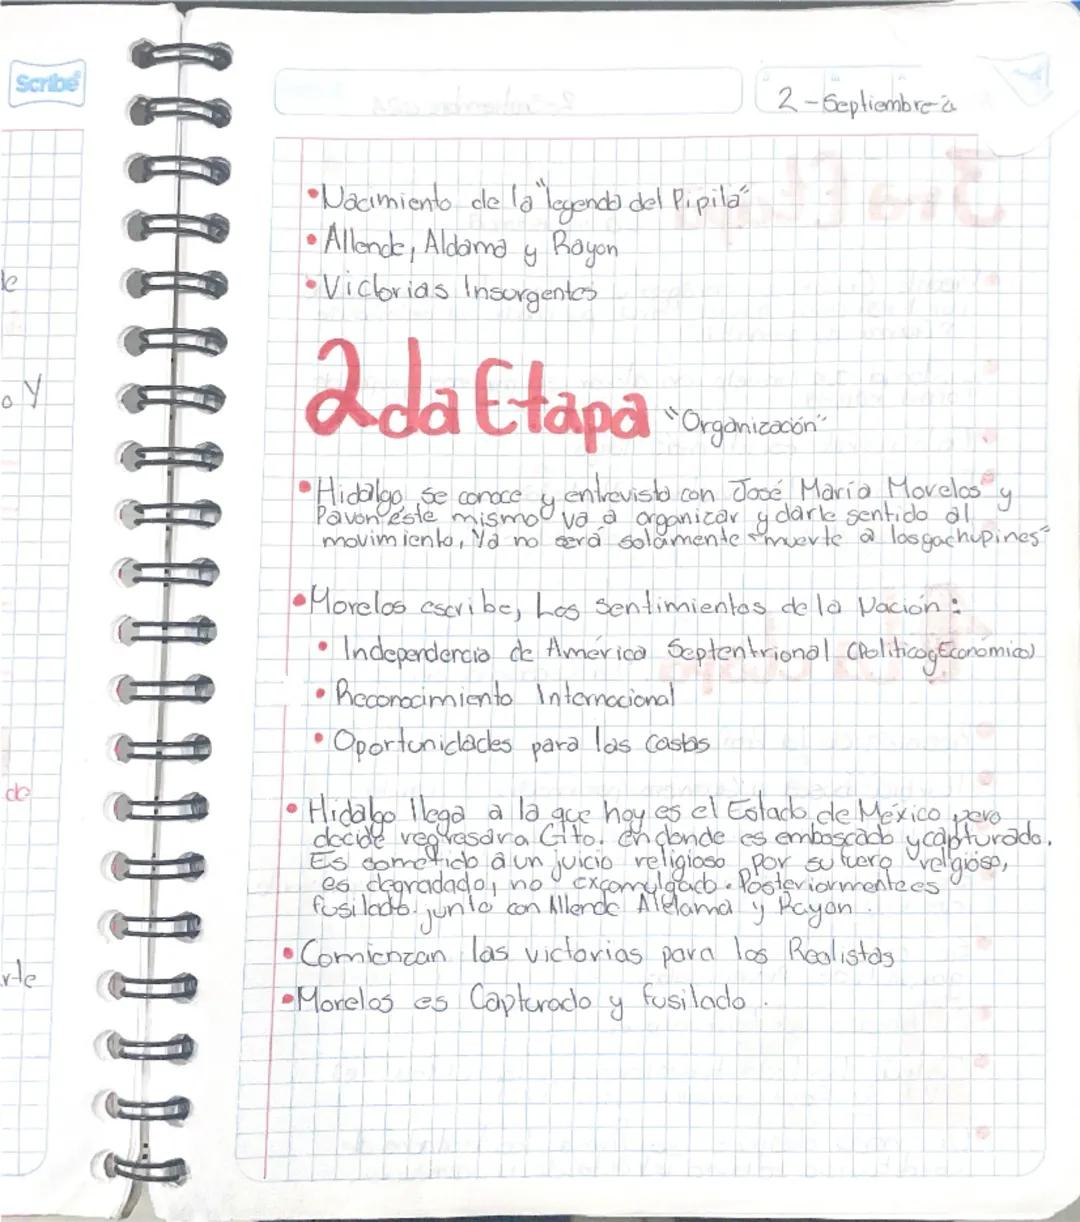 Scribe
2-Septiembre-2
•Nacimiento de la "legenda del Pipila"
•Allende, Aldama y Rayon
•Victorias Insurgentes
2da Etapa "Organización"
•Hidalgo se conoce y entrevista con José María Morelos y
Pavon éste mismo va a organizar y darle sentido al
movimiento, Ya no será solamente "muerte a los gachupines"
•Morelos escribe, Los Sentimientos de la Nación:
• Independencia de América Septentrional (Politica y Económica)
• Reconocimiento Internacional
• Oportunidades para las castas
• Hidalgo llega a la que hoy es el Estado de México, pero
decide regresar a Gto. en donde es emboscado y capturado.
Es sometido a un juicio religioso por su fuero religioso,
es degradado, no excomulgado. Posteriormente es
fusilado. junto con Allende Aldama y Rayon.
•Comienzan las victorias para los Realistas
•Morelos es Capturado y fusilado.
le
o Y
de
rte